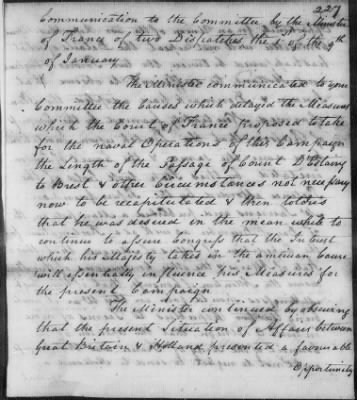 227
Communication to the Committee by the Minister
of France of two Dispatches the 1st of the 9th
of January
The Minister communicated to your
Committee the Causes which delayed the Measures
which the Court of France proposed to take
for the naval Operations of this Campaign
the Length of the Passage of Count D'Estaing
to Brest & other Circumstances not necessary
now to be recapitulated & then told us
that he was desired in the mean while to
continue to assure Congress that the Interest
which his Majesty takes in the american Cause
will essentially influence his Measures for
the present Campaign
The Minister continued by observing
that the present Situation of Affairs between
Great Britain & Holland presented a favourable
Opportunity